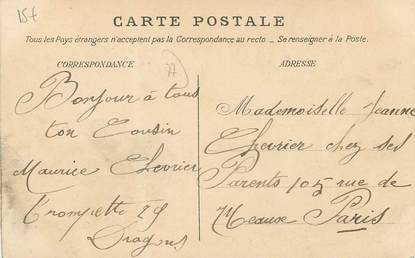 15f
CARTE POSTALE
Tous les Pays étrangers n'acceptent pas la Correspondance au recto. — Se renseigner à la Poste.
CORRESPONDANCE
77
ADRESSE
Bonjour à tous
ton Cousin
Maurice Chevrier
Trompette 29
Dragons
Mademoiselle Jeanne
Chevrier chez ses
Parents 105 rue de
Meaux Paris